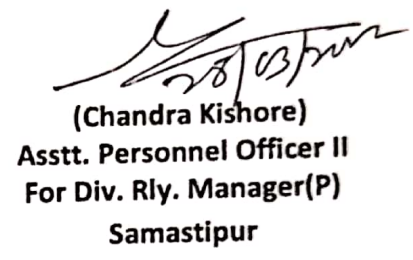 28/03/
(Chandra Kishore)
Asstt. Personnel Officer II
For Div. Rly. Manager(P)
Samastipur